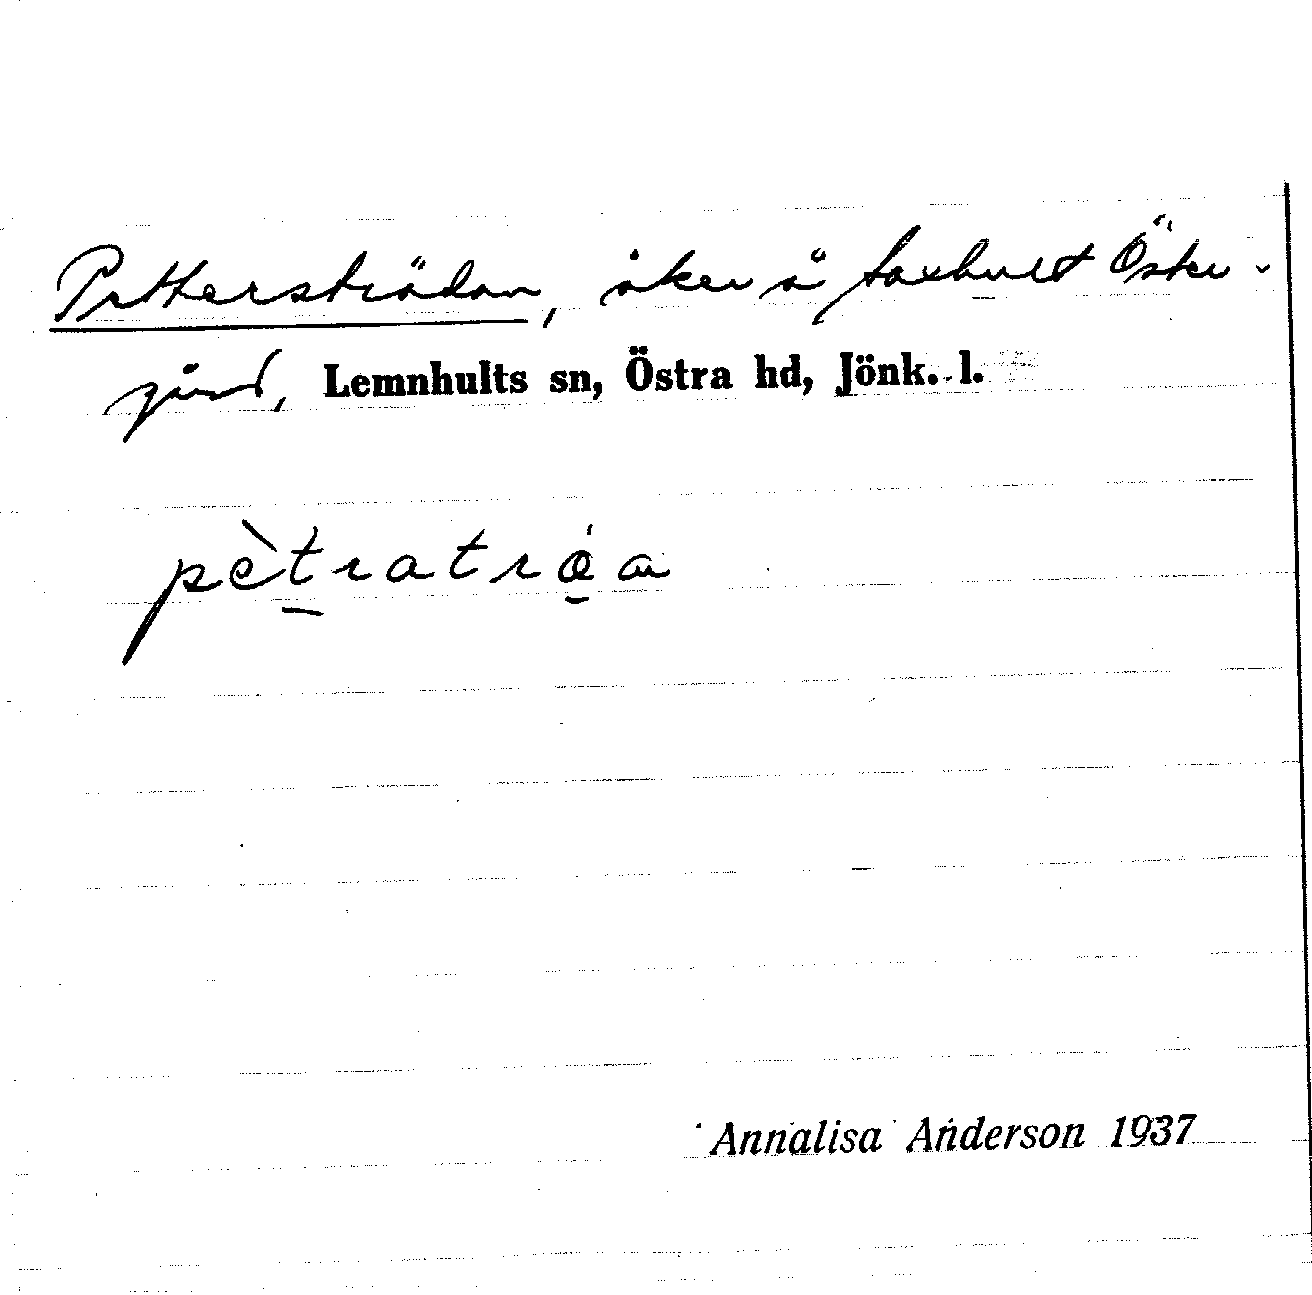 Petterströdan, åker å Foxhult Öster-
gård, Lemnhults sn, Östra hd, Jönk. l.
pètratrǿa
Annalisa Anderson 1937